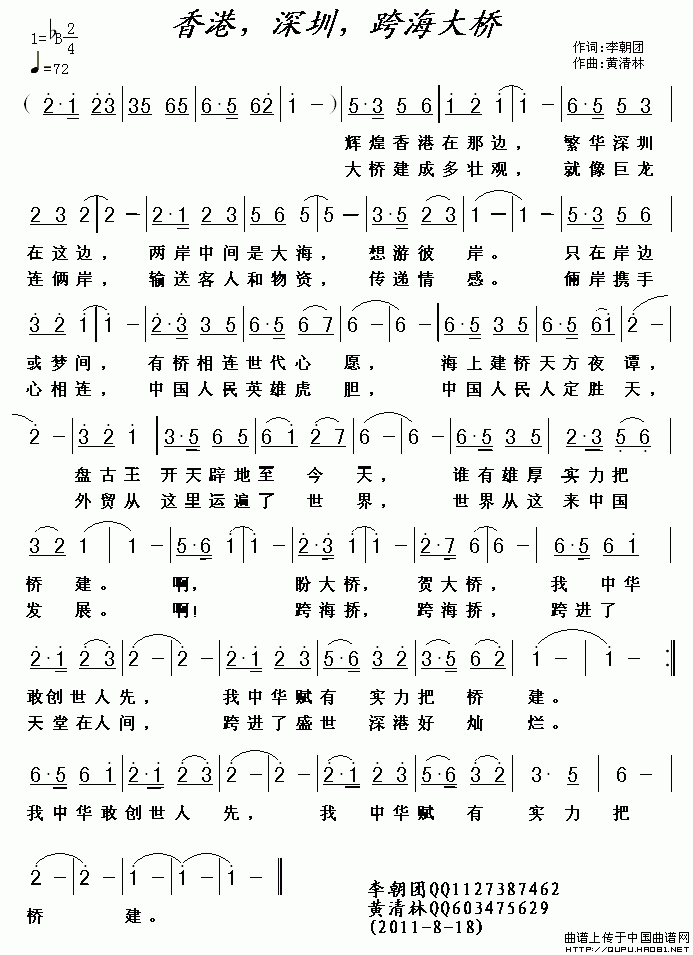 香港，深圳，跨海大桥
1=♭B 2/4
♩=72
作词:李朝团
作曲:黄清林
(2·1 23|35 65|6·5 62|1 -)|5·3 5 6|1 2 1|6·5 53|
辉煌香港在那边，繁华深圳
大桥建成多壮观，就像巨龙
2 3 2|2 -|2·1 23|5 6 5|5 -|3·5 2 3|1 -|1 -|3·5 56|
在这边，两岸中间是大海，想游彼岸。只在岸边
连俩岸，输送客人和物资，传递情感。俩岸携手
3 2 1|1 -|2·3 35|6·5 6 7|6 -|6 -|5·3 56|6·5 61|2 -|
或梦间，有桥相连世代心愿，海上建桥天方夜谭，
心相连，中国人民英雄虎胆，中国人民人定胜天，
2 -|3 2 1|3·5 6 5|6 1 2 7|6 -|6 -|6·5 3 5|2·3 5 6|
盘古王开天辟地至今天，谁有雄厚实力把
外贸从这里运遍了世界，世界从这来中国
3 2 1|1 -|5·6 1|1 -|2·3 1|1 -|2·7 6|6 -|6·5 6 1|
桥建。啊，盼大桥，贺大桥，我中华
发展。啊!跨海挢，跨海挢，跨进了
2·1 2 3|2 -|2 -|2·1 2 3|5·6 3 2|3·5 6 2|1 -|1 -:‖
敢创世人先，我中华赋有实力把桥建。
天堂在人间，跨进了盛世深港好灿烂。
6·5 6 1|2·1 2 3|2 3|2·1 2 3|5·5 6|3 2 3|3· 5|6 -|
我中华敢创世人先，我中华赋有实力把
2 -|2 -|1 -|1 -‖
桥建。
李朝团QQ1127387462
黄清林QQ603475629
(2011-8-18)
曲谱上传于中国曲谱网
http://QUPU.HAO81.NET